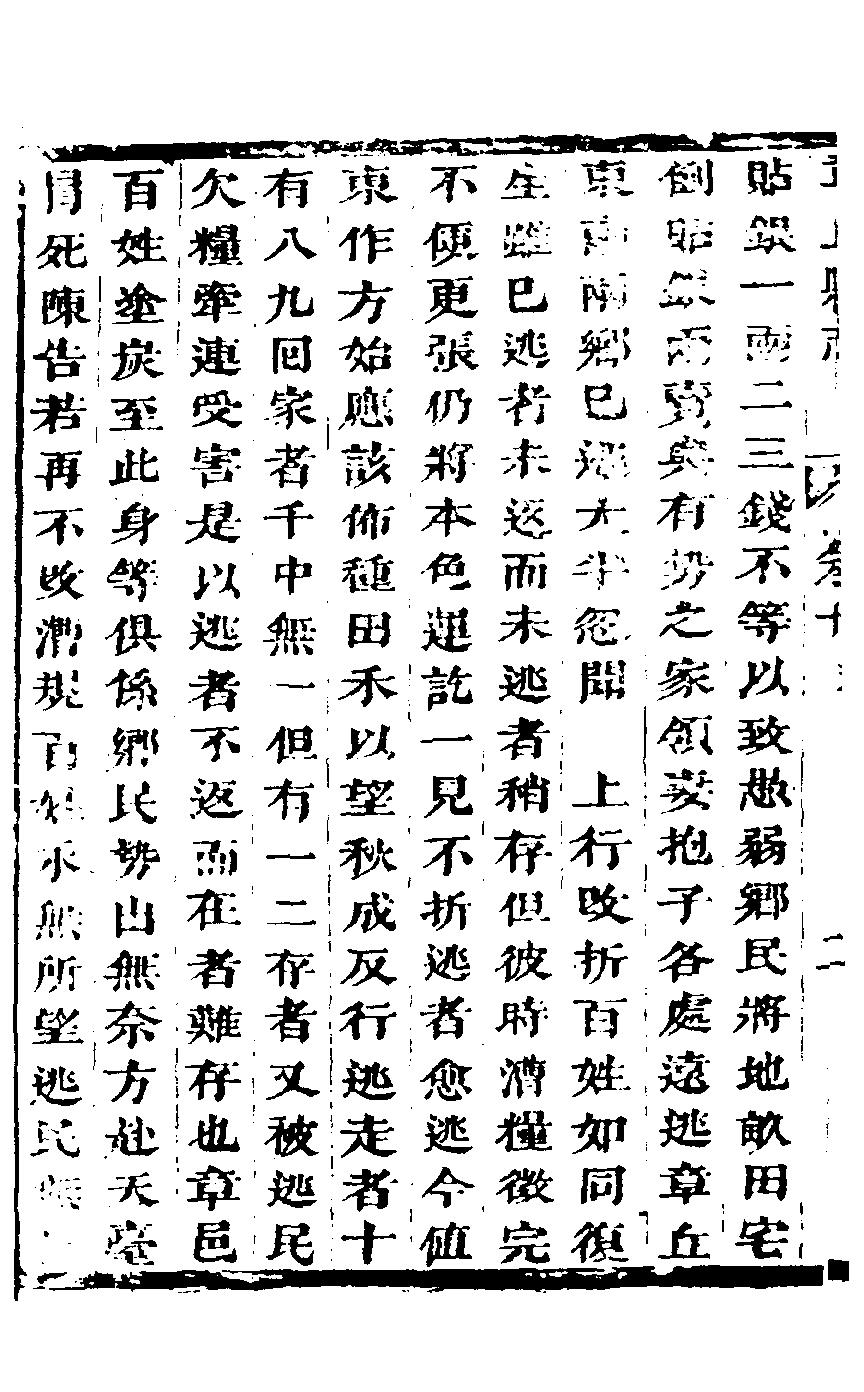 貼銀一兩二三錢不等以致懲弱鄉民將地畝田宅
倒貼銀兩賣與有勢之家領妻抱子各處遠逃章丘
東南兩鄉已逃大半忽聞　上行改折百姓如同復
生雖已逃者未返而未逃者稍存但彼時漕糧徵完
不便更張仍將本色運訖一見不折逃者愈逃今值
東作方始應該佈種田禾以望秋成反行逃走者十
有八九回家者千中無一但有一二存者又被逃民
欠糧牽連受害是以逃者不返而在者難存也章邑
百姓塗炭至此身等俱係鄉民勢出無奈方赴天臺
冒死陳告若再不改漕規百姓永無所望逃民無
卷十
二